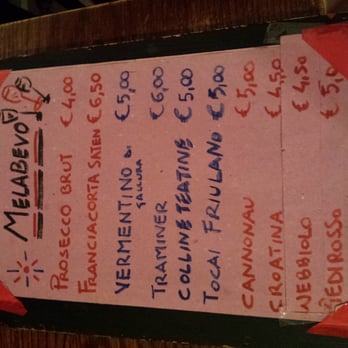 MELABEVO
PROSECCO BRUT €4,00
FRANCIACORTA SATEN €6,50
VERMENTINO DI GALLURA €5,00
TRAMINER €6,00
COLLINE TEATINE €5,00
TOCAI FRIULANO €5,00
CANNONAU €5,00
CROATINA €4,50
NEBBIOLO €4,50
PIEDIROSSO €5,0